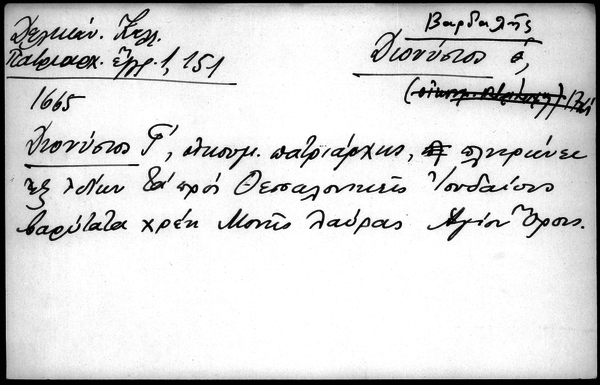 Δελικάν. Καλλ.
Πατριαρχ. ἔγγρ. 1, 151
Βαρδαλῆς
Διονύσιος ὁ,
1665
Διονύσιος Γ', οἰκουμ. πατριάρχης, πληρώνει
ἐξ ἰδίων τὰ πρὸς Θεσσαλονικεῖς Ἰουδαίους
βαρύτατα χρέη Μονῆς Λαύρας Ἁγίου Ὄρους.